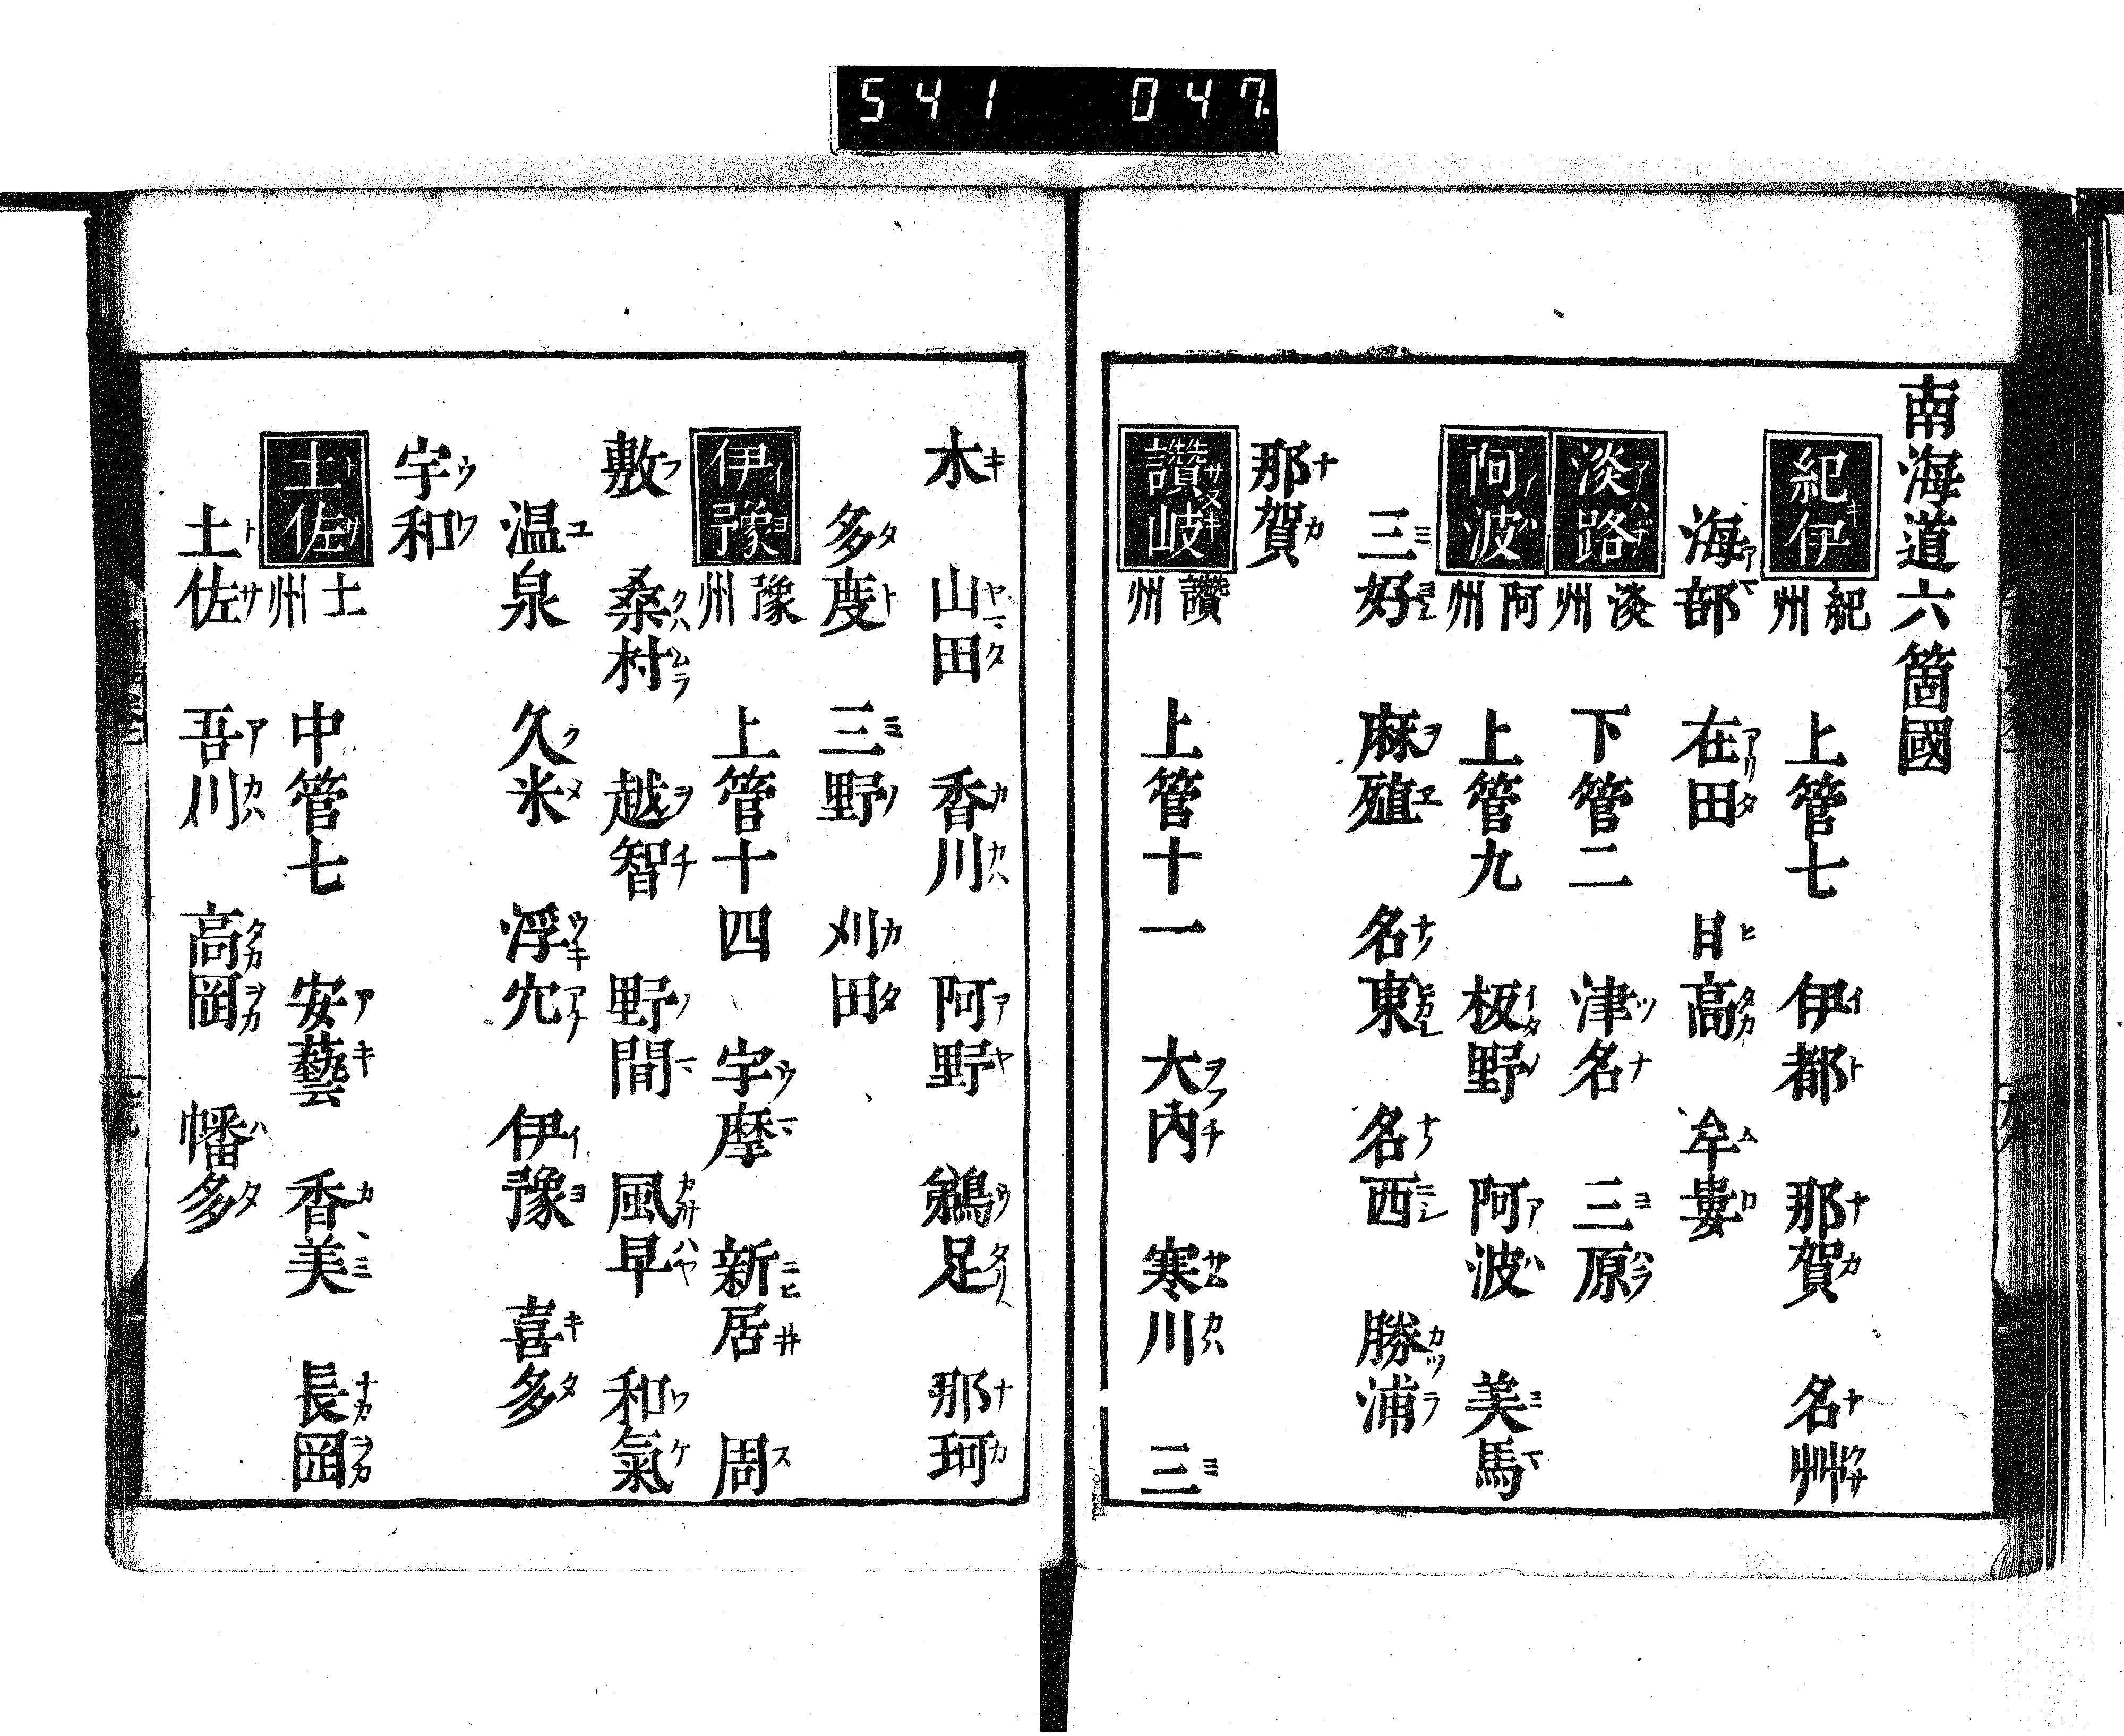 541 047
南海道六箇國
紀伊 紀州 上管七 伊都 那賀 名艸
海部 在田 日高 牟婁
淡路 淡州 下管二 津名 三原
阿波 阿州 上管九 板野 阿波 美馬
三好 麻殖 名東 名西 勝浦
那賀
讚岐 讚州 上管十一 大內 寒川 三
木 山田 香川 阿野 鵜足 那珂
多度 三野 刈田
伊豫 豫州 上管十四 宇摩 新居 周
敷 桑村 越智 野間 風早 和氣
温泉 久米 浮穴 伊豫 喜多
宇和
土佐 土州 中管七 安藝 香美 長岡
土佐 吾川 高岡 幡多